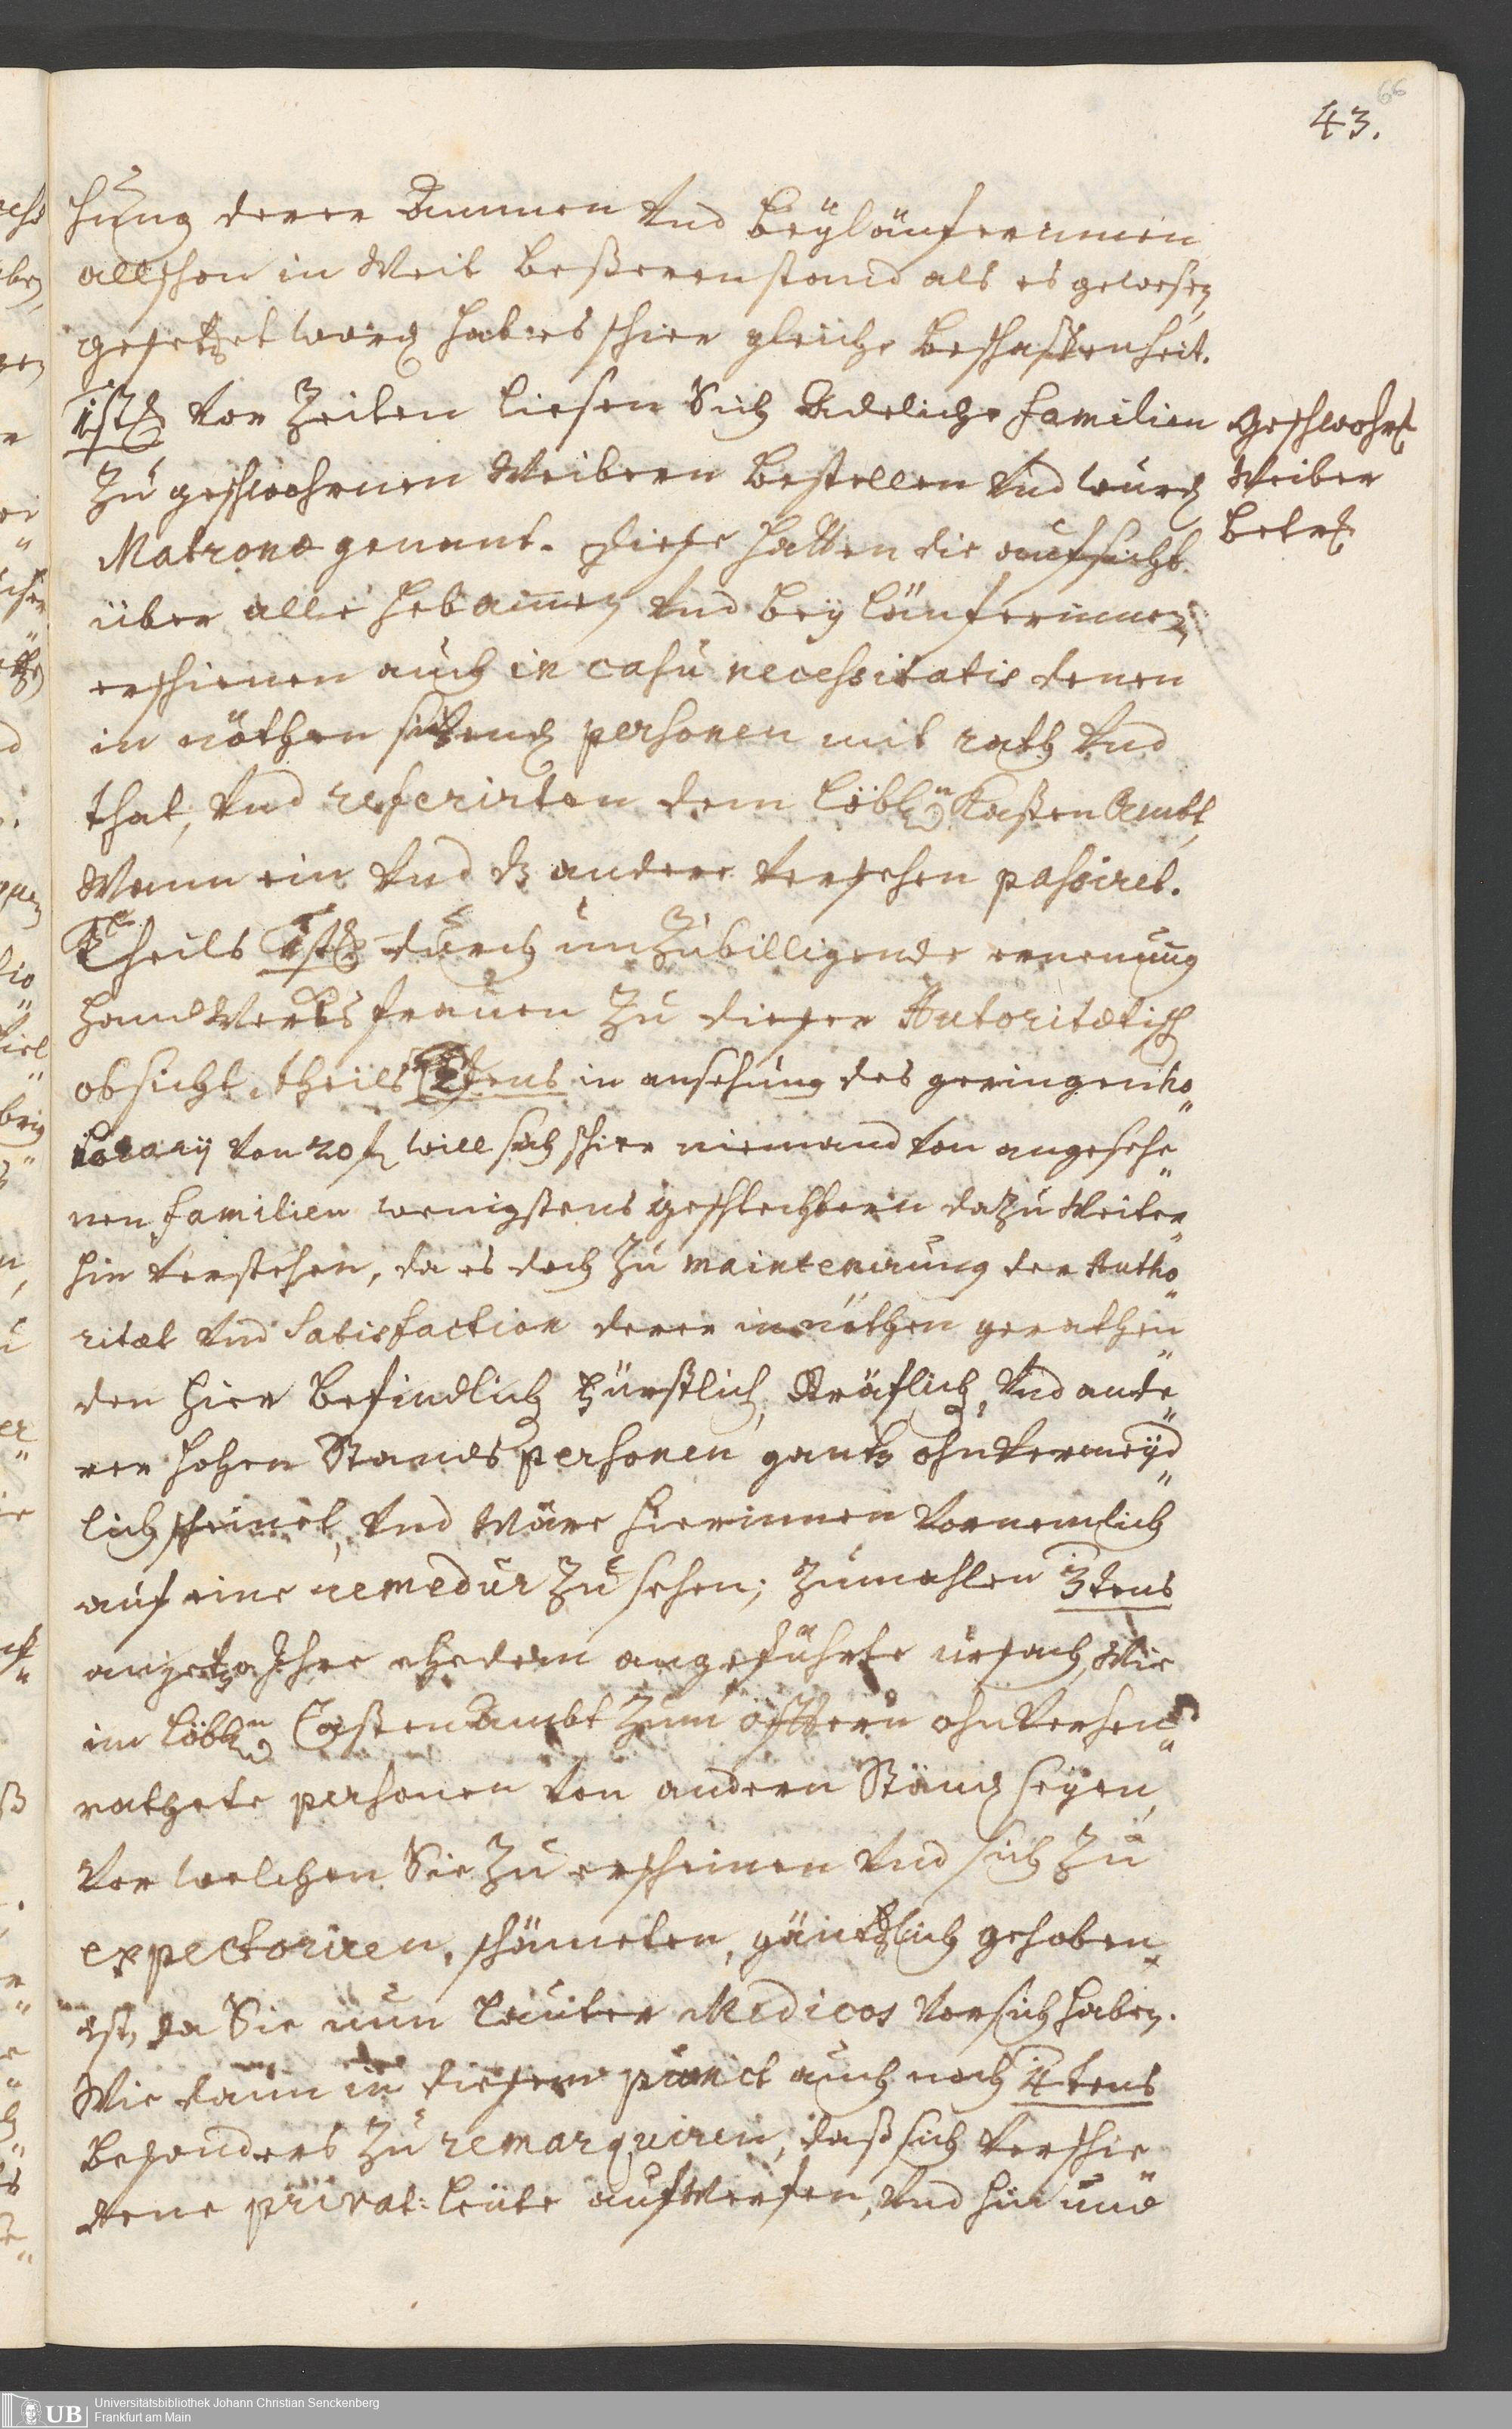 66
43.
hung derer Ammen und Beyläuferinnen
allschon in Weit beßeren stand als es gewesen,
gesetzet word hat es schier gleiche beschaffenheit.
1st. Vor Zeiten liesen Sich Adeliche familien
Zu geschwohrnen Weibern bestellen und wurd
Matronæ genent. diese hatten die aufsicht
über alle Hebammen und Bey läuferinnen,
erschienen auch in casu necessitatis denen
in nöthen sitzend personen mit rath und
that, und referirten dem löbln Kasten Ambt,
Wann ein und dz andere versehen passiret.
Theils 1st. durch unzubilligende ernennung
handwercks frauen zu dieser Autoritætisch
obsicht, theils 2tens in ansehung des geringen ho„
norarij von 20 f will sich schier niemand von angesehe„
nen familien wenigstens geschlechtern dazu Weiter„
hin verstehen, da es doch zu maintenirung der Autho„
ritæt und Satisfaction derer in nöthen gerathen„
den hier befindlich Fürstlich, Gräflich, und ande„
ren hohen Stands personen gantz ohnvermeyd„
lich scheinet, und wäre hierinnen vornemlich
auf eine remedur zu sehen; Zumahlen 3tens
anjetzo Ihre ehedem angeführte ursach, Wie
im löbln Casten Ambt zum öfftern ohnverheu„
rathete personen von andern Stand seyen,
Vor welchen Sie zu erscheinen und sich zu
expectoriren, schämeten, gäntzlich gehoben
ist, da Sie nun lauter Medicos vor sich haben.
Wie dann in diesem punct auch noch 4tens
besonders zu remarquiren, daß sich verschie„
dene privat: leute aufwerfen, und hin und
Geschwohrne
Weiber
betr.
UB
Universitätsbibliothek Johann Christian Senckenberg
Frankfurt am Main